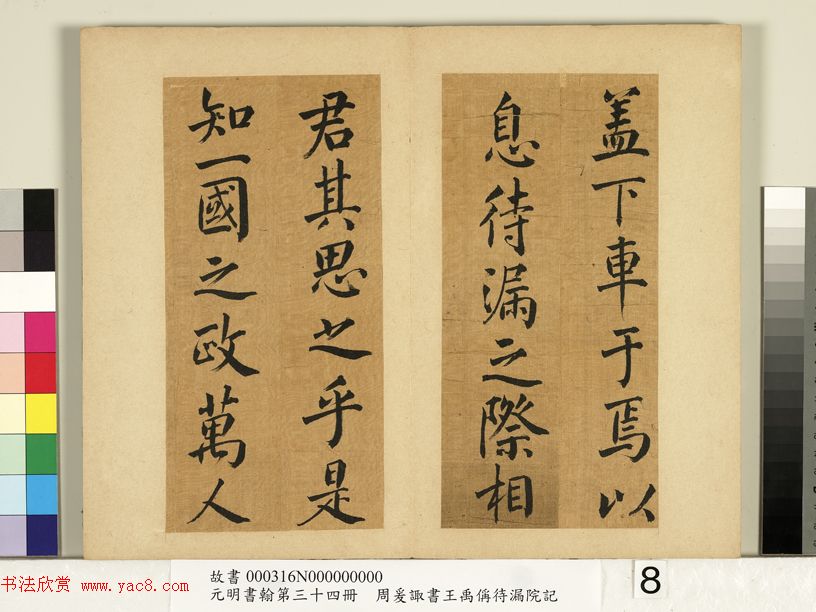 盖下車于焉以
息待漏之際相
君其思之乎是
知一國之政萬人
故書 000316N000000000
元明書翰第三十四冊 周爰諏書王禹偁待漏院記
8
书法欣赏 www.yac8.com